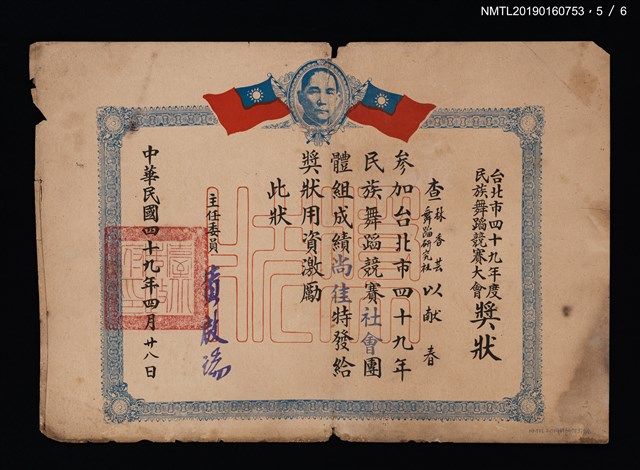 NMTL20190160753，5 / 6
台北市四十九年度
民族舞蹈競賽大會
獎狀
查林香芸
舞蹈研究社
以献春
參加台北市四十九年
民族舞蹈競賽社會團
體組成績尚佳特發給
獎狀用資激勵
此狀
主任委員
黃啟瑞
中華民國四十九年四月廿八日